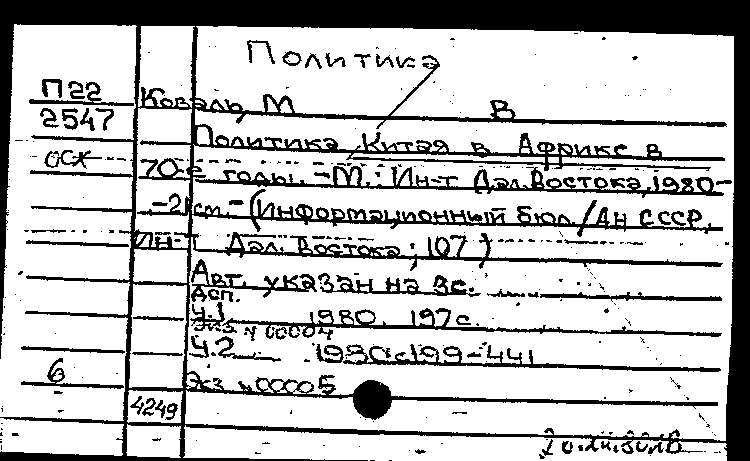 Политика
П22
2547
осх
Коваль, М В
Политика Китая в Африке в
70-е годы. -М.: Ин-т Дал.Востока, 1980-
-21см. - (Информационный бюл./Ан СССР,
Ин-т Дал. Востока; 107)
Авт. указан на 3с.
дсп.
Ч.1. 1980. 197с.
Экз. № 00004
Ч.2 1980 с199-441
6
Экз №00005
4249